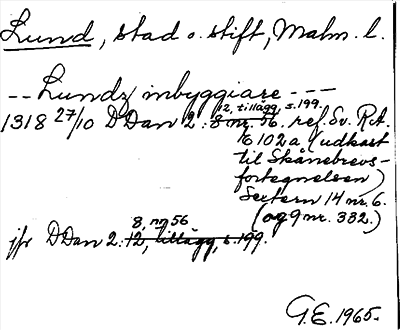 Lund, stad o. stift, Malm. l.
-- Lundz inbyggiare ---
12, tillägg, s. 199.
1318 27/10 DDan 2: 8 nr. 56. ref. Sv. R.A.
102a (udkast
til Skånebrevs-
fortegnelsen)
Seetern 14 nr. 6.
(og 9 nr. 332.)
8, nr 56
jfr DDan 2: 12, tillägg, s. 199.
G.E. 1965.